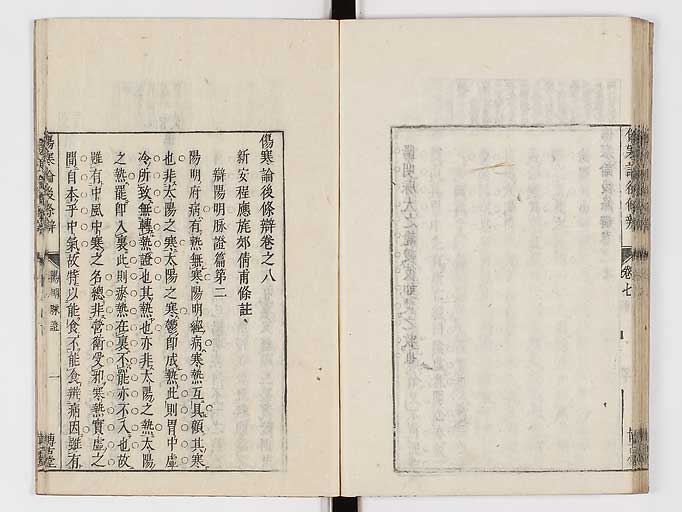 傷寒論後條辯
卷七
傷寒論後條辯卷之八
新安程應旄郊倩甫條註、
辯陽明脉證篇第二
陽明府病有熱無寒陽明經病寒熱互具顧其寒
也非太陽之寒太陽之寒鬱即成熱此則胃中虛
冷所致無轉熱證也其熱也亦非太陽之熱太陽
之熱罷即入裏此則瘀熱在裏不能亦不入也故
雖有中風中寒之名總非營衛受邪寒熱實虛之
間自本乎中氣故特以能食不能食辨病因雖有
傷寒論後條辯
陽明脉證
一
博古堂